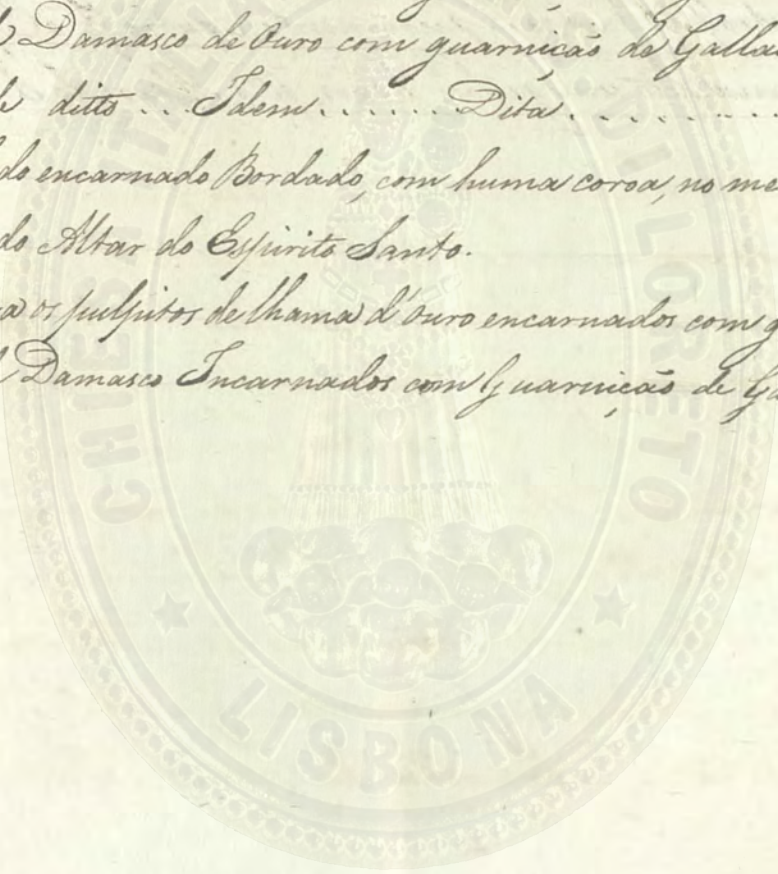 Damasco de Ouro com guarnição de Galla
ditto . . . Idem . . . . . . Dita . . . . . . . . .
do encarnado Bordado, com huma coroa, no me
do Altar do Espirito Santo.
a os pulpitos de lhama d'ouro encarnados com g
Damasco Incarnados com Guarnição de Ga
CHIESA ITAL
DI LORETO
LISBONA